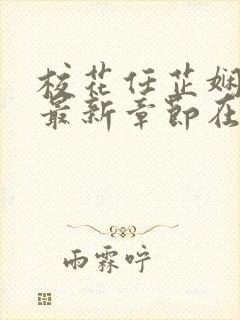 校花任芷娴
最新章节在
雨霖咛